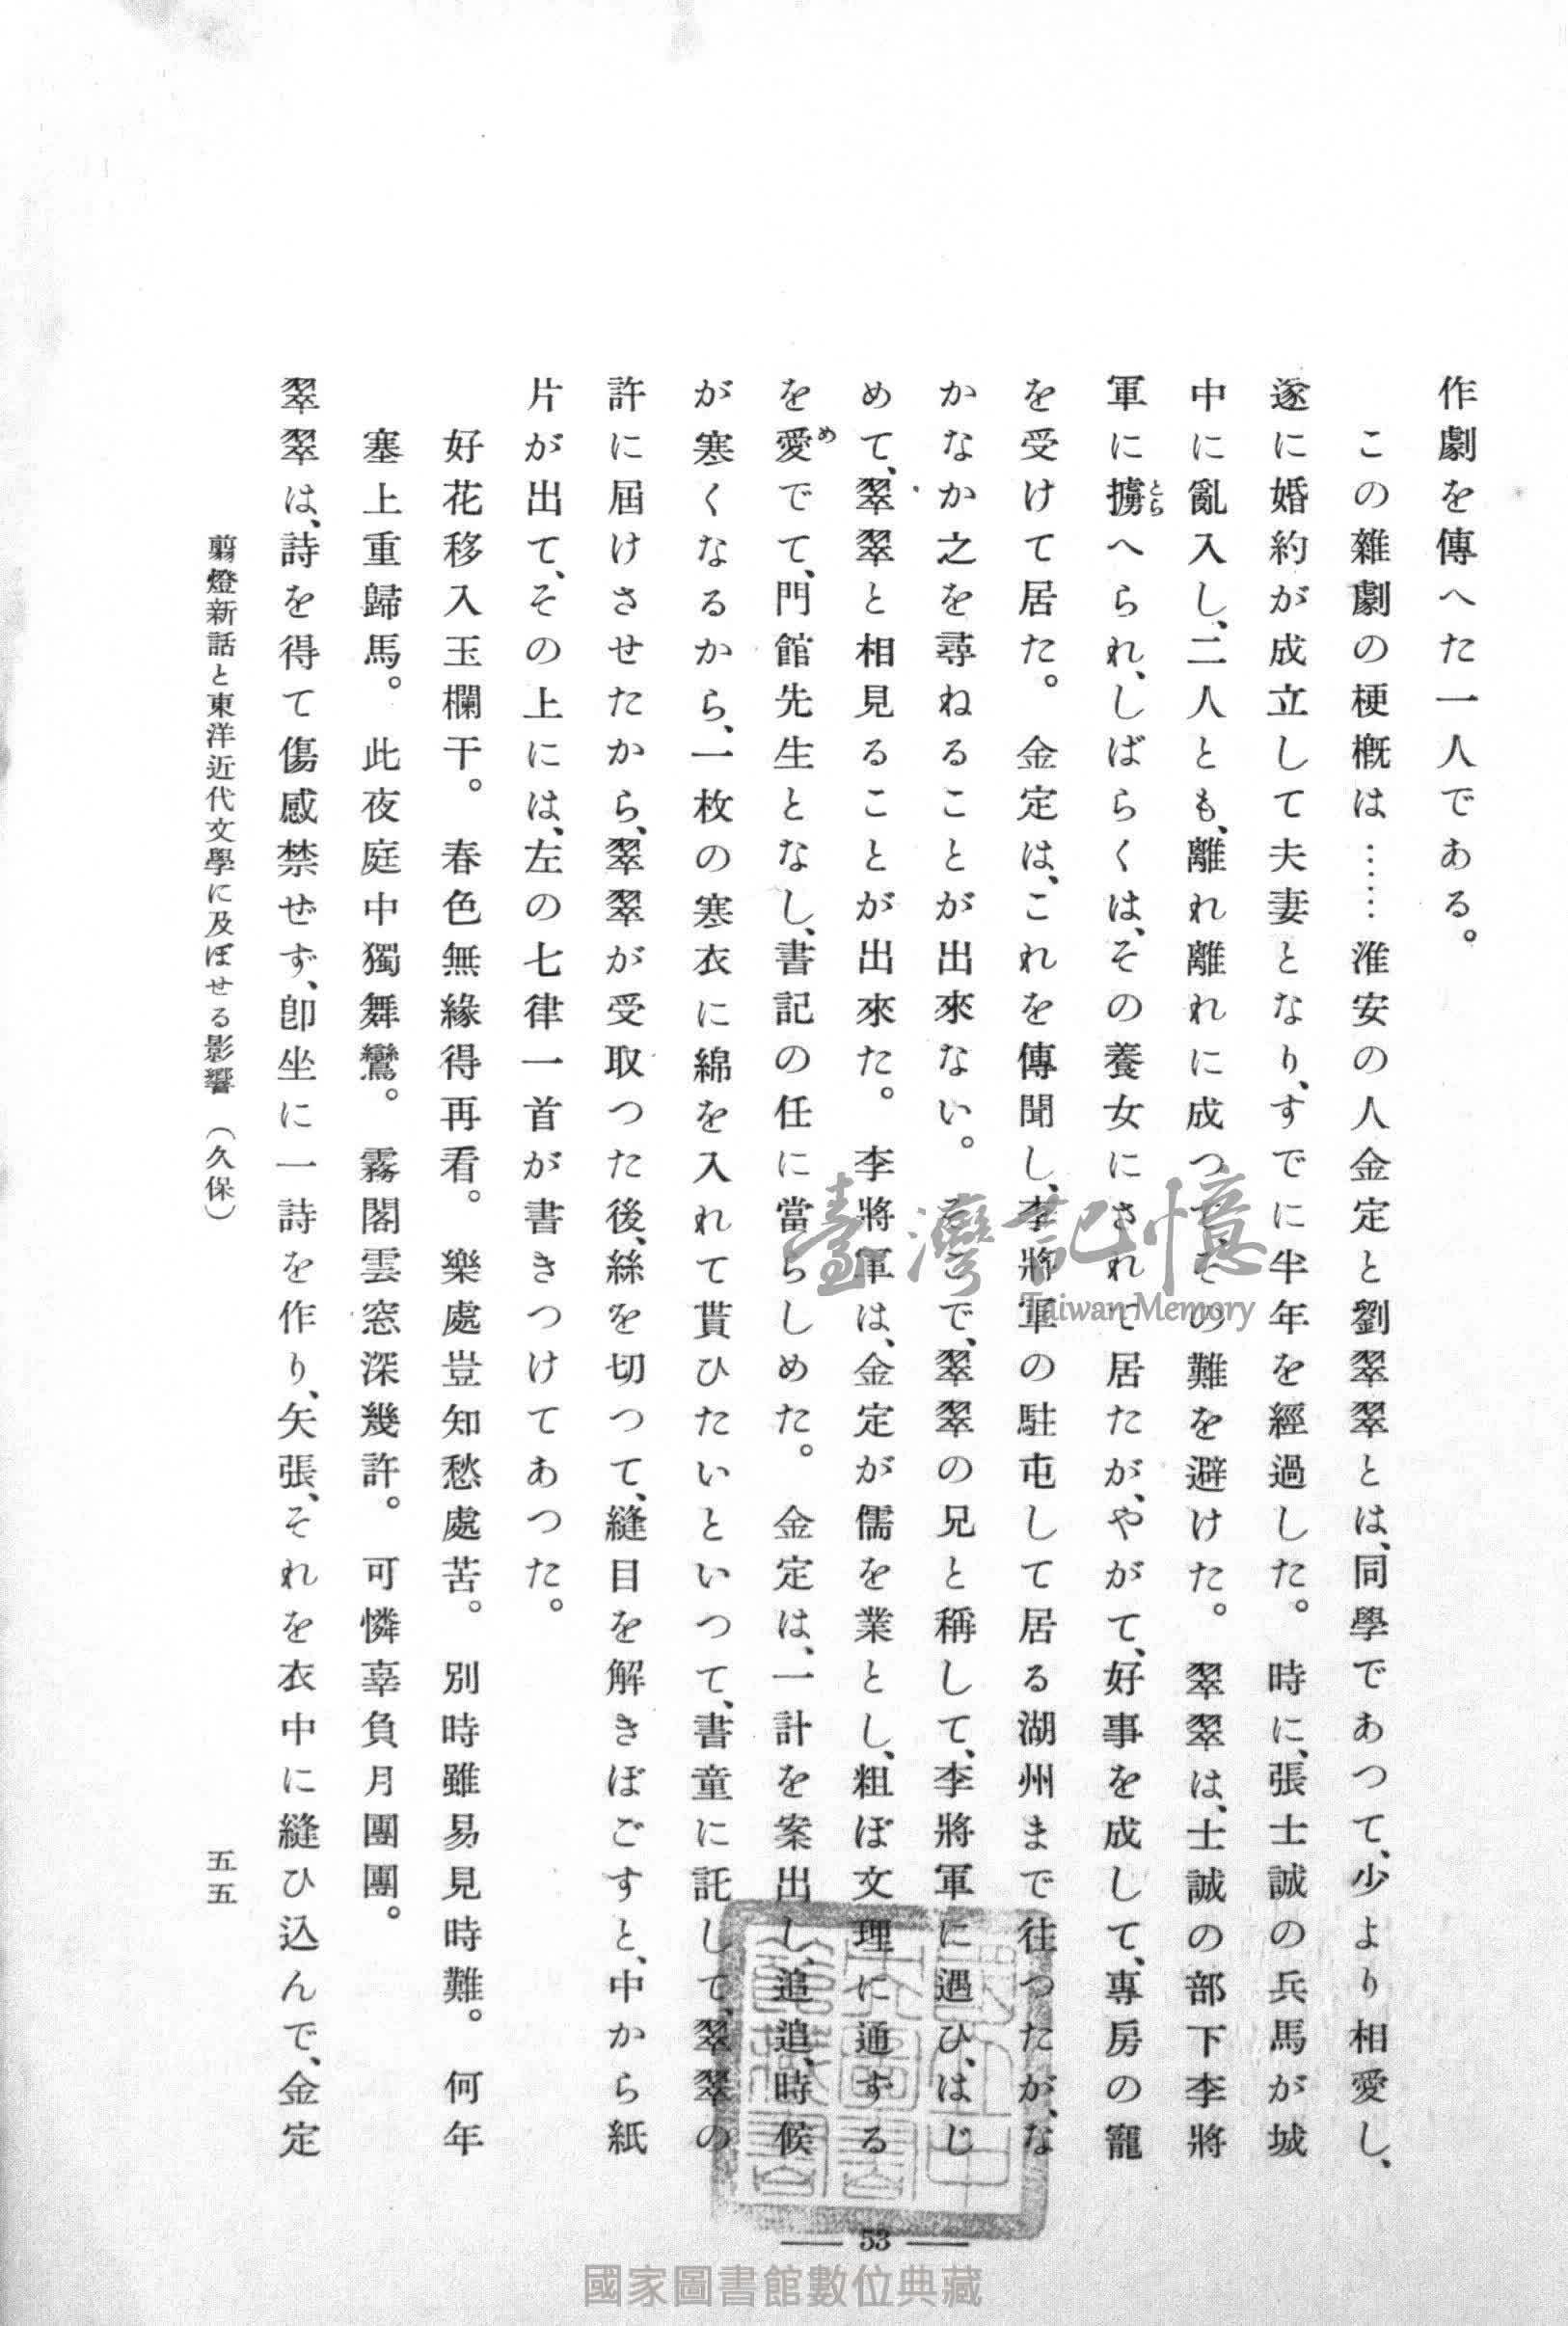 作劇を傳へた一人である。
この雜劇の梗概は……淮安の人金定と劉翠翠とは、同學であつて、少より相愛し、
遂に婚約が成立して夫妻となり、すでに半年を經過した。時に、張士誠の兵馬が城
中に亂入し、二人とも、離れ離れに成つて、その難を避けた。翠翠は、士誠の部下李將
軍に擄へられ、しばらくは、その養女にされて居たが、やがて、好事を成して、專房の寵
とら
を受けて居た。金定は、これを傳聞し、李將軍の駐屯して居る湖州まで往つたが、な
かなか之を尋ねることが出來ない。そこで、翠翠の兄と稱して、李將軍に遇ひ、はじ
めて、翠翠と相見ることが出來た。李將軍は、金定が儒を業とし、粗ぼ文理に通ずる
を愛でて、門館先生となし、書記の任に當らしめた。金定は、一計を案出し、追追、時候
め
が寒くなるから、一枚の寒衣に綿を入れて貰ひたいといつて、書童に託して、翠翠の
許に屆けさせたから、翠翠が受取つた後、絲を切つて、縫目を解きほごすと、中から紙
片が出て、その上には、左の七律一首が書きつけてあつた。
好花移入玉欄干。春色無緣得再看。樂處豈知愁處苦。別時雖易見時難。何年
塞上重歸馬。此夜庭中獨舞鸞。霧閣雲窓深幾許。可憐辜負月團團。
翠翠は、詩を得て傷感禁ぜず、卽坐に一詩を作り、矢張、それを衣中に縫ひ込んで、金定
翦燈新話と東洋近代文學に及ぼせる影響（久保）
五五
53
臺灣記憶
Taiwan Memory
國家圖書館數位典藏